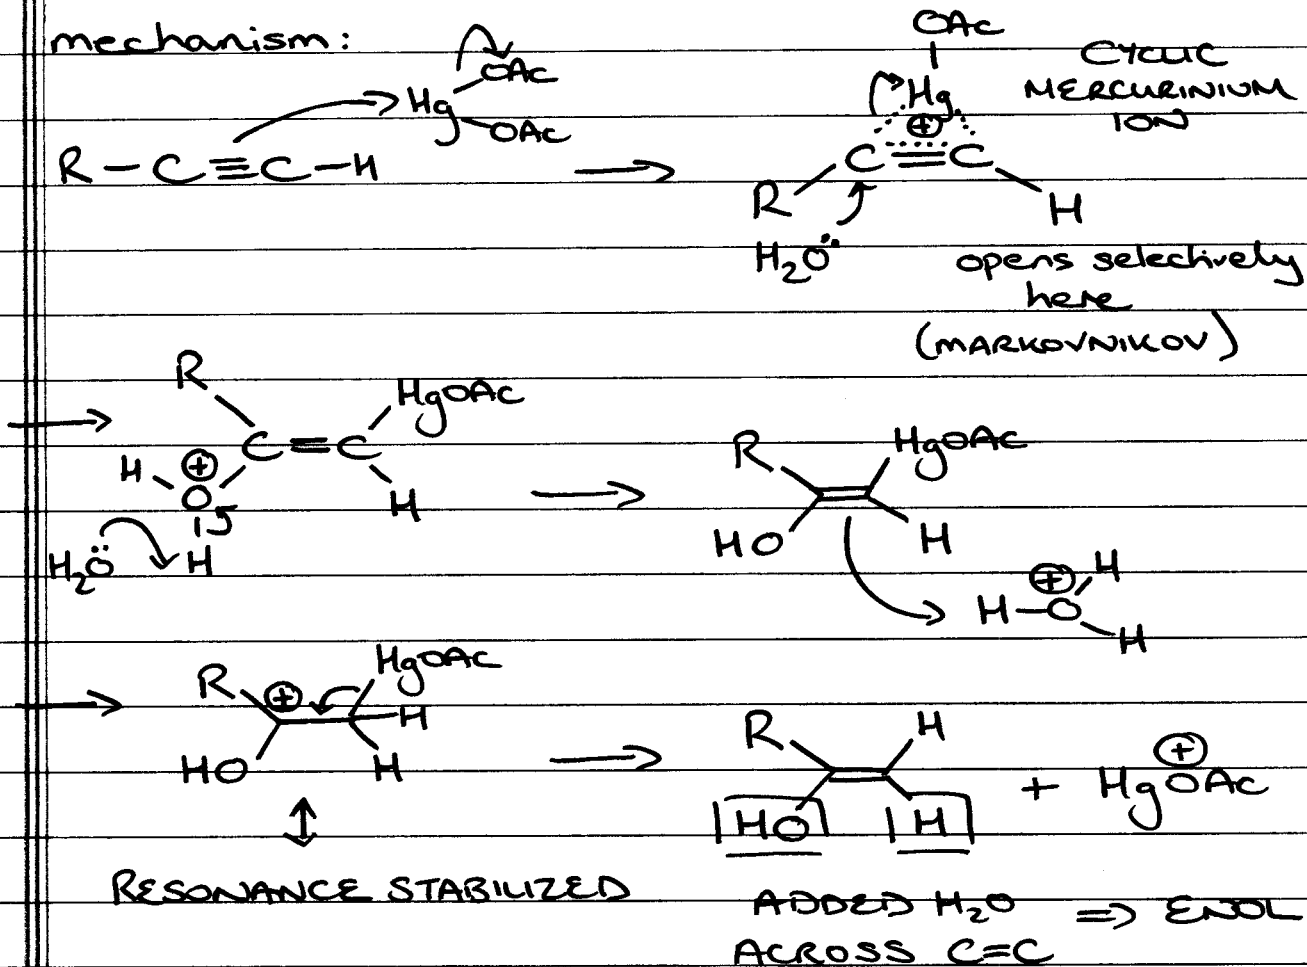 mechanism:
OAc
Hg
OAc
R–C≡C–H
OAc
Hg
⊕
C=C
R
H
H₂O:
CYCLIC
MERCURINIUM
ION
opens selectively
here
(MARKOVNIKOV)
R
HgOAc
C=C
H
⊕
O
H
H
H₂Ö
R
HgOAc
HO
H
⊕
H
H–O
H
R
⊕
HgOAc
H
HO
H
↕
RESONANCE STABILIZED
R
H
HO
H
+ HgOAc
⊕
ADDED H₂O ⇒ ENOL
ACROSS C=C